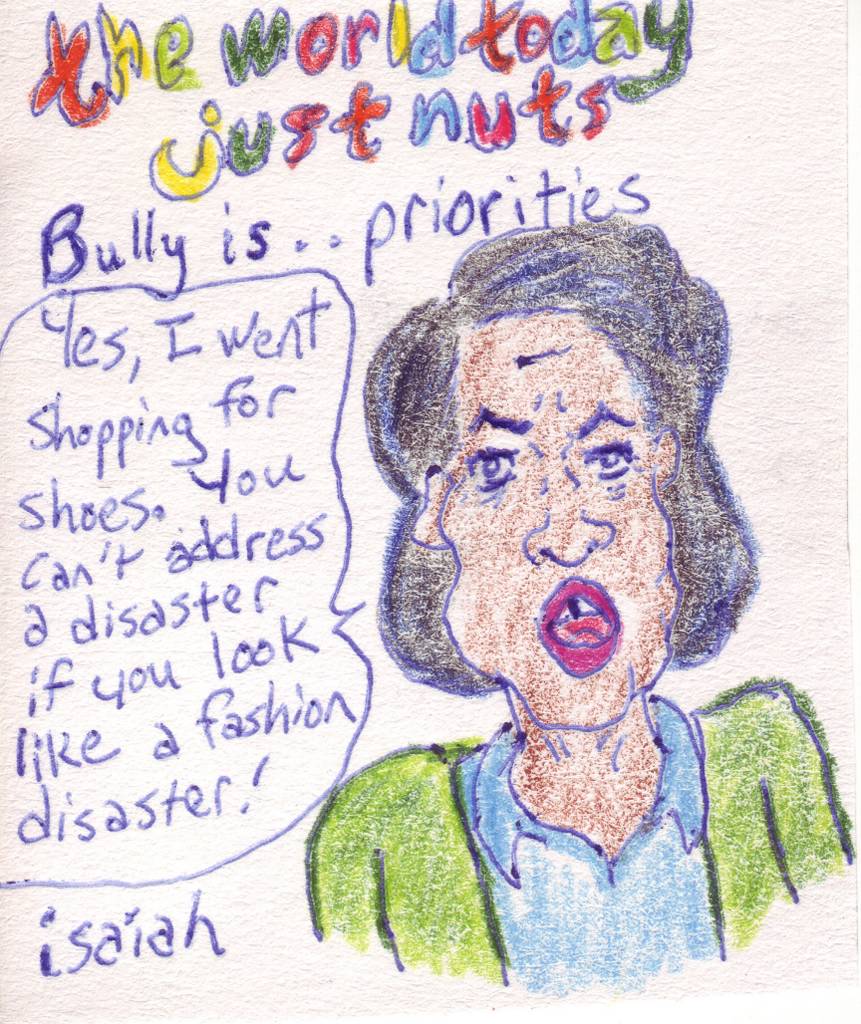 the world today
just nuts
Bully is... priorities
Yes, I went
shopping for
shoes. You
can't address
a disaster
if you look
like a fashion
disaster!
isaiah